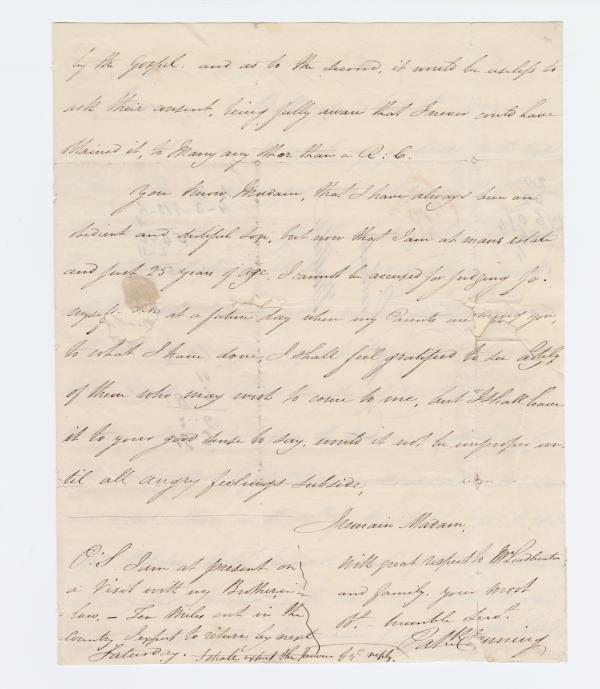 by the Gospel. and as to the second, it would be useless to
ask their consent, being fully aware that I never could have
obtained it, to Marry any other than a R: C.
You know, Madam, that I have always been an
obedient and dutiful son, but now that I am at mans estate
and just 25 years of age, I cannot be accused for judging for
myself. at a future day when my Parents are
to what I have done, I shall feel gratified to see
of them who may wish to come to me, but I shall leave
it to your good sense to say, would it not be improper un-
til all angry feelings subside,
I remain Madam,
With great respect to Mr Leadbeater
and family. your most
Obt. humble Servt.
P.S. I am at present on
a Visit with my Brother in
law. – Ten Miles out in the
Country I expect to return by next
Saturday. I shall expect the favour of yr reply.